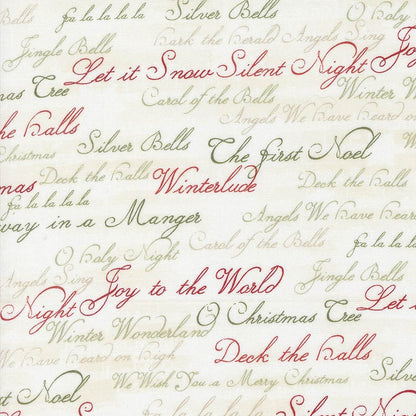 Bells fa la la la la Silver Bells O Holy
Jingle Bells Hark the Herald Angels Sing
Let it Snow Silent Night Joy
mas Tree Carol of the Bells Winter W
Angels We have heard on
he halls Silver Bells The First Noel
Christmas
mas Deck the halls Winterlude Deck the halls
fa la la la la
way in a Manger Angels We have hear
O Holy Night Carol of the Bells fa la la la
Angels Sing Jingle Bells
Night Joy to the World Let i
O Christmas Tree
Winter Wonderland
We have heard on high Deck the halls
We Wish You a Merry Christmas Silver
ck the halls
Silent Night fa la la la la